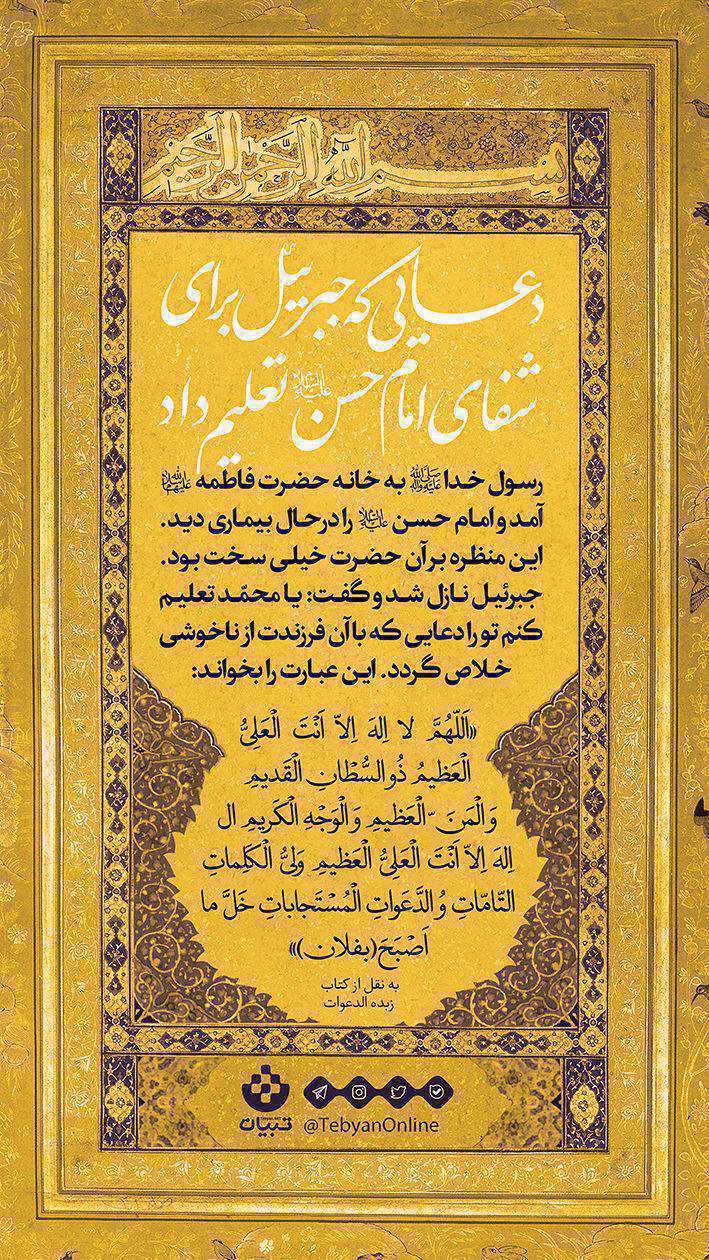 بسم الله الرحمن الرحیم
دعایی که جبرییل برای
شفای امام حسن علیه السلام تعلیم داد
رسول خدا ﷺ به خانه حضرت فاطمه
آمد و امام حسن علیه السلام را درحال بیماری دید.
این منظره بر آن حضرت خیلی سخت بود.
جبرئیل نازل شد و گفت: یا محمّد تعلیم
کنم تو را دعایی که با آن فرزندت از ناخوشی
خلاص گردد. این عبارت را بخواند:
«اَللّهُمَّ لا اِلهَ اِلاّ اَنْتَ الْعَلِیُّ
الْعَظیمُ ذُوالسُّطانِ الْقَدیمِ
وَالْمَنَ ّالْعَظیمِ وَالْوَجْهِ الْکَریمِ ال
اِلهَ اِلاّ اَنْتَ الْعَلِیُّ الْعَظیمِ وَلِیُّ الْکَلِماتِ
التّامّاتِ وُالدَّعَواتِ الْمُسْتَجاباتِ خَلَّ ما
اَصْبَحَ(بفلان)»
به نقل از کتاب
زبده الدعوات
تبیان
@TebyanOnline